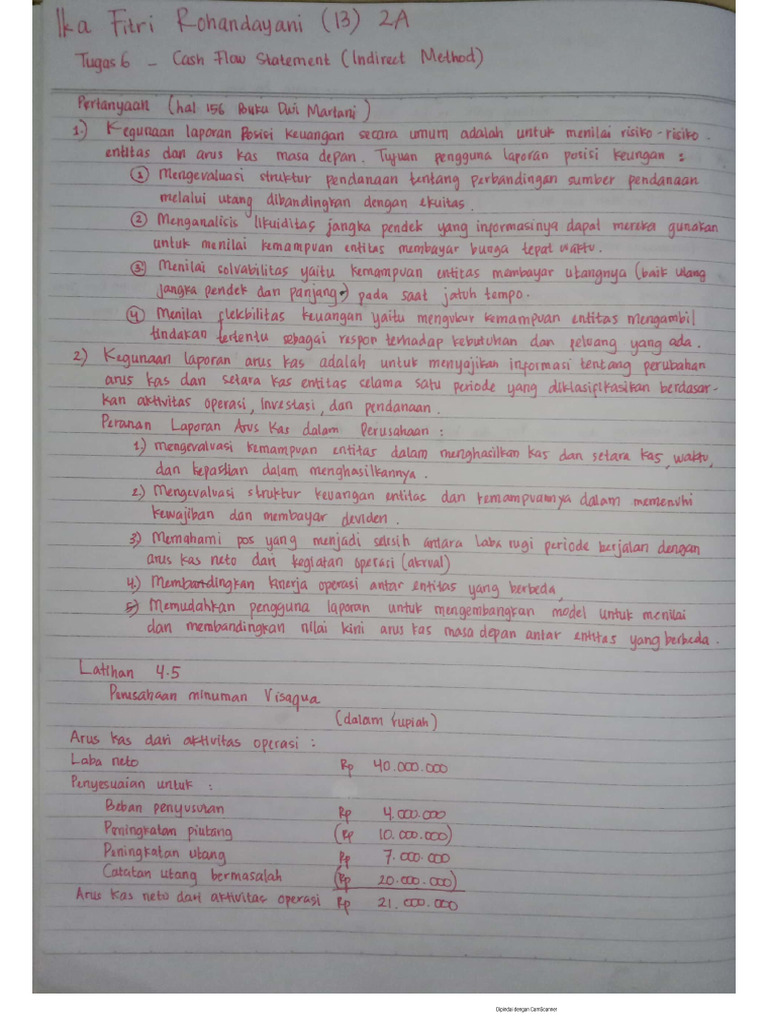 Ika Fitri Rohandayani (13) 2A
Tugas 6 - Cash Flow Statement (Indirect Method)
Pertanyaan (hal 156 Buku Dwi Martani)
1.) Kegunaan laporan Posisi keuangan secara umum adalah untuk menilai risiko-risiko
entitas dan arus kas masa depan. Tujuan pengguna laporan posisi keungan :
① Mengevaluasi struktur pendanaan tentang perbandingan sumber pendanaan
melalui utang dibandingkan dengan ekuitas.
② Menganalisis likuiditas jangka pendek yang informasinya dapat mereka gunakan
untuk menilai kemampuan entitas membayar bunga tepat waktu.
③ Menilai solvabilitas yaitu kemampuan entitas membayar utangnya (baik utang
jangka pendek dan panjang) pada saat jatuh tempo.
④ Menilai flekbilitas keuangan yaitu mengukur kemampuan entitas mengambil
tindakan tertentu sebagai respon terhadap kebutuhan dan peluang yang ada.
2) Kegunaan laporan arus kas adalah untuk menyajikan informasi tentang perubahan
arus kas dan setara kas entitas selama satu periode yang diklasifikasikan berdasar-
kan aktivitas operasi, Investasi, dan pendanaan.
Peranan Laporan Arus Kas dalam Perusahaan :
1) mengevaluasi kemampuan entitas dalam menghasilkan kas dan setara kas, waktu,
dan kepastian dalam menghasilkannya.
2) Mengevaluasi struktur keuangan entitas dan kemampuannya dalam memenuhi
kewajiban dan membayar deviden.
3) Memahami pos yang menjadi selisih antara laba rugi periode berjalan dengan
arus kas neto dari kegiatan operasi (akrual)
4) Membandingkan kinerja operasi antar entitas yang berbeda,
5) Memudahkan pengguna laporan untuk mengembangkan model untuk menilai
dan membandingkan nilai kini arus kas masa depan antar entitas yang berbeda.
Latihan 4.5
Perusahaan minuman Visaqua
(dalam rupiah)
Arus kas dari aktivitas operasi :
Laba neto Rp 40.000.000
Penyesuaian untuk :
Beban penyusutan Rp 4.000.000
Peningkatan piutang (Rp 10.000.000)
Peningkatan utang Rp 7.000.000
Catatan utang bermasalah (Rp 20.000.000)
Arus kas neto dari aktivitas operasi Rp 21.000.000
Dipindai dengan CamScanner